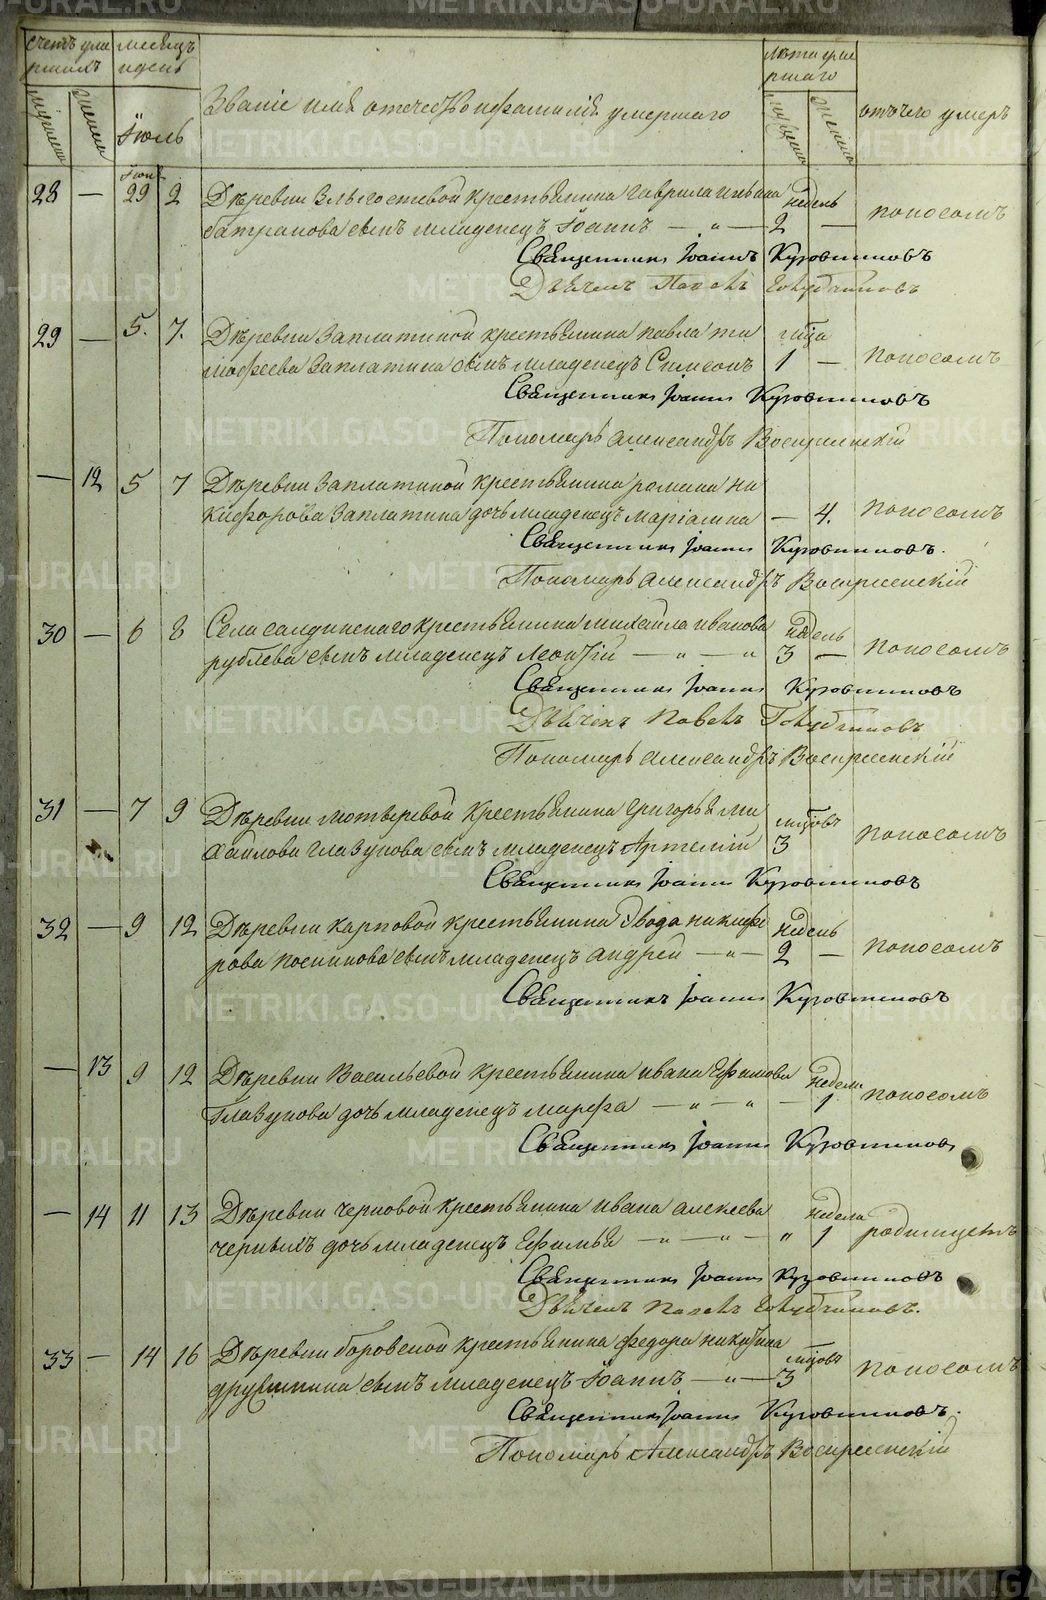 счетъ уме
ршихъ
мужеска
женска
месяцъ
и день
Іюль
Званіе имя отечество и фамилія умершаго
лѣта уме
ршаго
мужеска
женска
отъ чего умеръ
Іюня
28 — 29 2 Деревни крестьянина Гаврила недель
сынъ младенецъ Іоаннъ — „ — 2 — поносомъ
Священникъ Іоаннъ Кузовниковъ
Дьячекъ Павелъ Голубчиковъ
29 — 5. 7. Деревни Заплатиной крестьянина Павла ти года
мофеева Заплатина сынъ младенецъ Симеонъ 1 — поносомъ
Священникъ Іоаннъ Кузовниковъ
Пономарь Александръ Воскресенскій
— 12 5 7 Деревни Заплатиной крестьянина романа ни
кифорова Заплатина дочь младенецъ маріамна — 4. поносомъ
Священникъ Іоаннъ Кузовниковъ.
Пономарь Александръ Воскресенскій
30 — 6 8 Села салдинскаго крестьянина михаила иванова недель
рублева сынъ младенецъ Леонтій — „ — „ 3 — поносомъ
Священникъ Іоаннъ Кузовниковъ
Дьячекъ Павелъ Голубчиковъ
Пономарь Александръ Воскресенскій
31 — 7 9 Деревни крестьянина григорья ми
хаилова глазунова сынъ младенецъ Артемій 3 поносомъ
Священникъ Іоаннъ Кузовниковъ
32 — 9 12 Деревни карповой крестьянина никифо недель
рова сынъ младенецъ андрей — „ — 2 — поносомъ
Священникъ Іоаннъ Кузовниковъ
— 13 9 12 Деревни Васильевой крестьянина ивана Ефимова неделя
Глазунова дочь младенецъ марфа — „ — „ — 1 поносомъ
Священникъ Іоаннъ Кузовниковъ
— 14 11 13 Деревни черновой крестьянина ивана алексеева неделя
черныхъ дочь младенецъ Ефимья — „ — „ — „ 1 родимцемъ
Священникъ Іоаннъ Кузовниковъ
Дьячекъ Павелъ Голубчиковъ.
33 — 14 16 Деревни боровской крестьянина федора никитина
дружинина сынъ младенецъ Іоаннъ — „ — 3 поносомъ
Священникъ Іоаннъ Кузовниковъ.
Пономарь Александръ Воскресенскій
METRIKI.GASO-URAL.RU